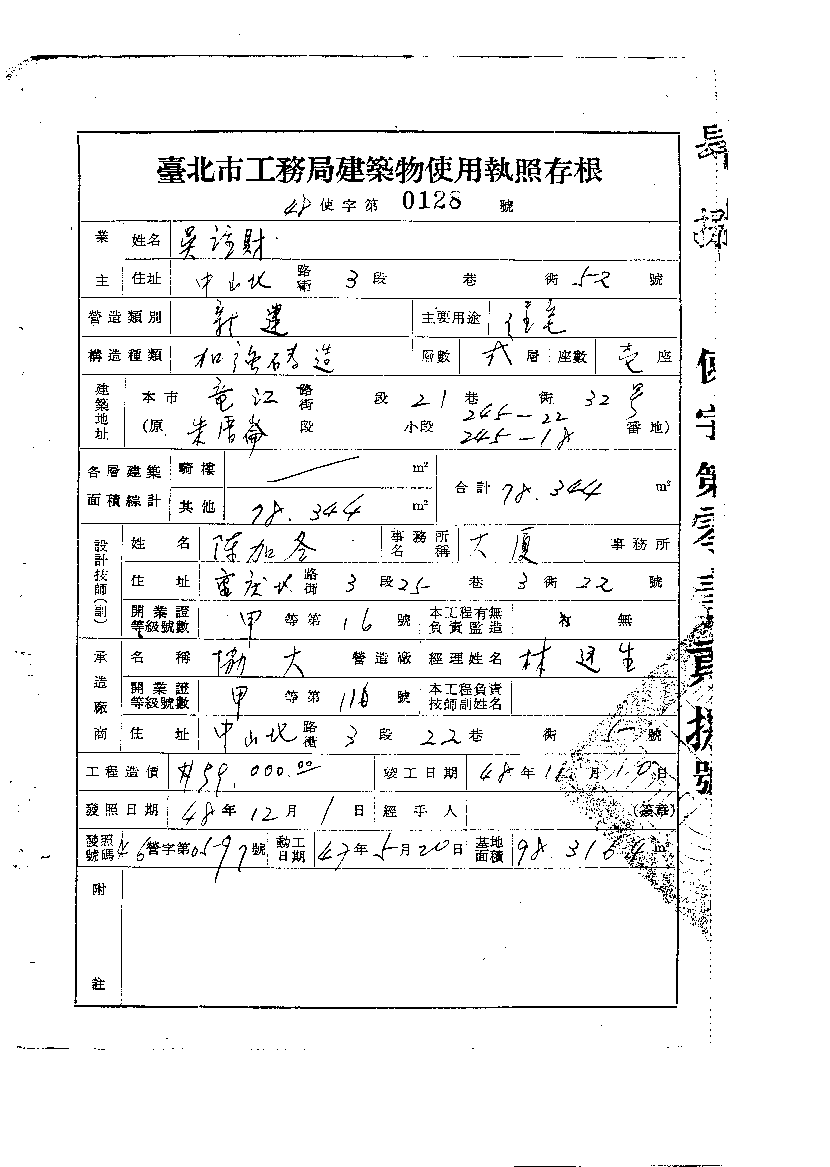 臺北市工務局建築物使用執照存根
48 使字第 0128 號
業主 姓名 吳 財
住址 中山北 路街 3 段 巷 衖 52 號
營造類別 新建 主要用途 住宅
構造種類 加強磚造 層數 弍 層 座數 壱 座
建築地址 本市 竜江 路街 段 21 巷 衖 32 号
(原 朱厝崙 段 小段 245-22 245-18 番地)
各層建築面積綜計 騎樓 m² 合計 78.344 m²
其他 78.344 m²
設計技師(副) 姓名 陳加冬 事務所名稱 大厦 事務所
住址 重慶北 路街 3 段 25 巷 3 衖 22 號
開業證等級號數 甲 等第 16 號 本工程有無負責監造 有 無
承造廠商 名稱 協大 營造廠 經理姓名 林 生
開業證等級號數 甲 等第 116 號 本工程負責技師副姓名
住址 中山北 路街 3 段 22 巷 衖 5 號
工程造價 59,000.00 竣工日期 48 年 11 月 10 日
發照日期 48 年 12 月 1 日 經手人 (簽章)
發照號碼 46 營字第 0597 號 動工日期 47 年 5 月 20 日 基地面積 98.3164 m²
附註
使字第零壹貳捌號